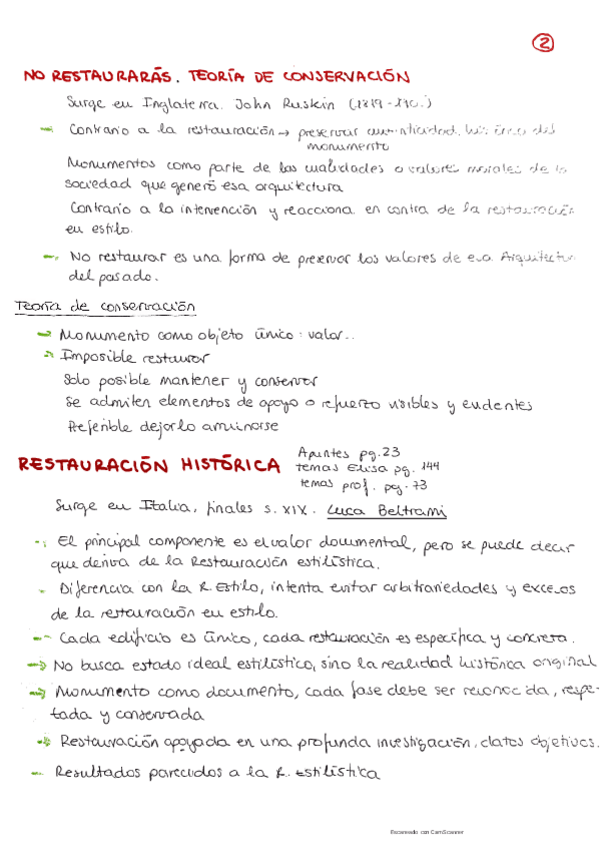 2
NO RESTAURARÁS. TEORÍA DE CONSERVACIÓN
Surge en Inglaterra. John Ruskin (1819-190.)
Contrario a la restauración → preservar autenticidad, del
monumento
Monumentos como parte de las cualidades o valores morales de la
sociedad que generó esa arquitectura
Contrario a la intervención y reacciona en contra de la restauración
en estilo.
No restaurar es una forma de preservar los valores de esa Arquitectura
del pasado.
Teoría de conservación
Monumento como objeto único: valor..
Imposible restaurar
Solo posible mantener y conservar
Se admiten elementos de apoyo o refuerzo visibles y evidentes
Preferible dejarlo arruinarse
RESTAURACIÓN HISTÓRICA
Apuntes pg. 23
temas Elisa pg. 144
temas prof. pg. 73
Surge en Italia, finales s. XIX. Luca Beltrami
El principal componente es el valor documental, pero se puede decir
que deriva de la Restauración estilística.
Diferencia con la R. Estilo, intenta evitar arbitrariedades y excesos
de la restauración en estilo.
Cada edificio es único, cada restauración es específica y concreta.
No busca estado ideal estilístico, sino la realidad histórica original
Monumento como documento, cada fase debe ser reconocida, respe-
tada y conservada
Restauración apoyada en una profunda investigación, datos objetivos.
Resultados parecidos a la R. Estilística
Escaneado con CamScanner